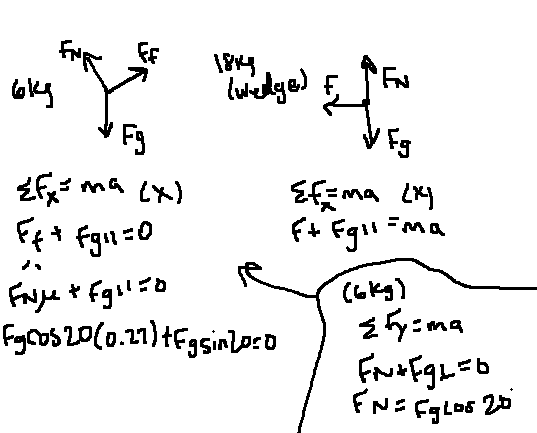 FN Ff
6kg
Fg
18kg (wedge)
F FN
Fg
ΣFx = ma (x)
Ff + Fg11 = 0
FNμ + Fg11 = 0
Fgcos20(0.27) + Fgsin20=0
Σfx = ma (x)
F + Fg11 = ma
(6kg)
ΣFy = ma
FN + Fg⊥ = 0
FN = Fgcos20